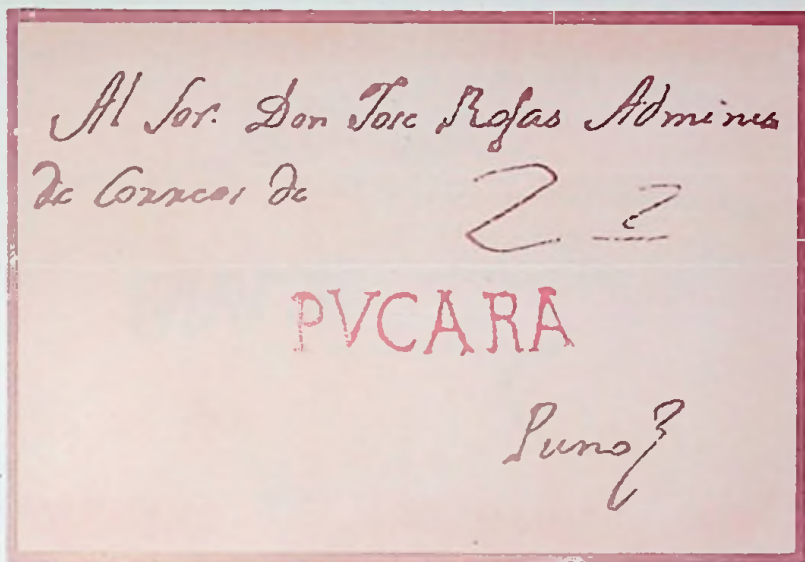 Al Sor. Don Jose Rojas Adminis
de Correos de
2 2
PVCARA
Puno